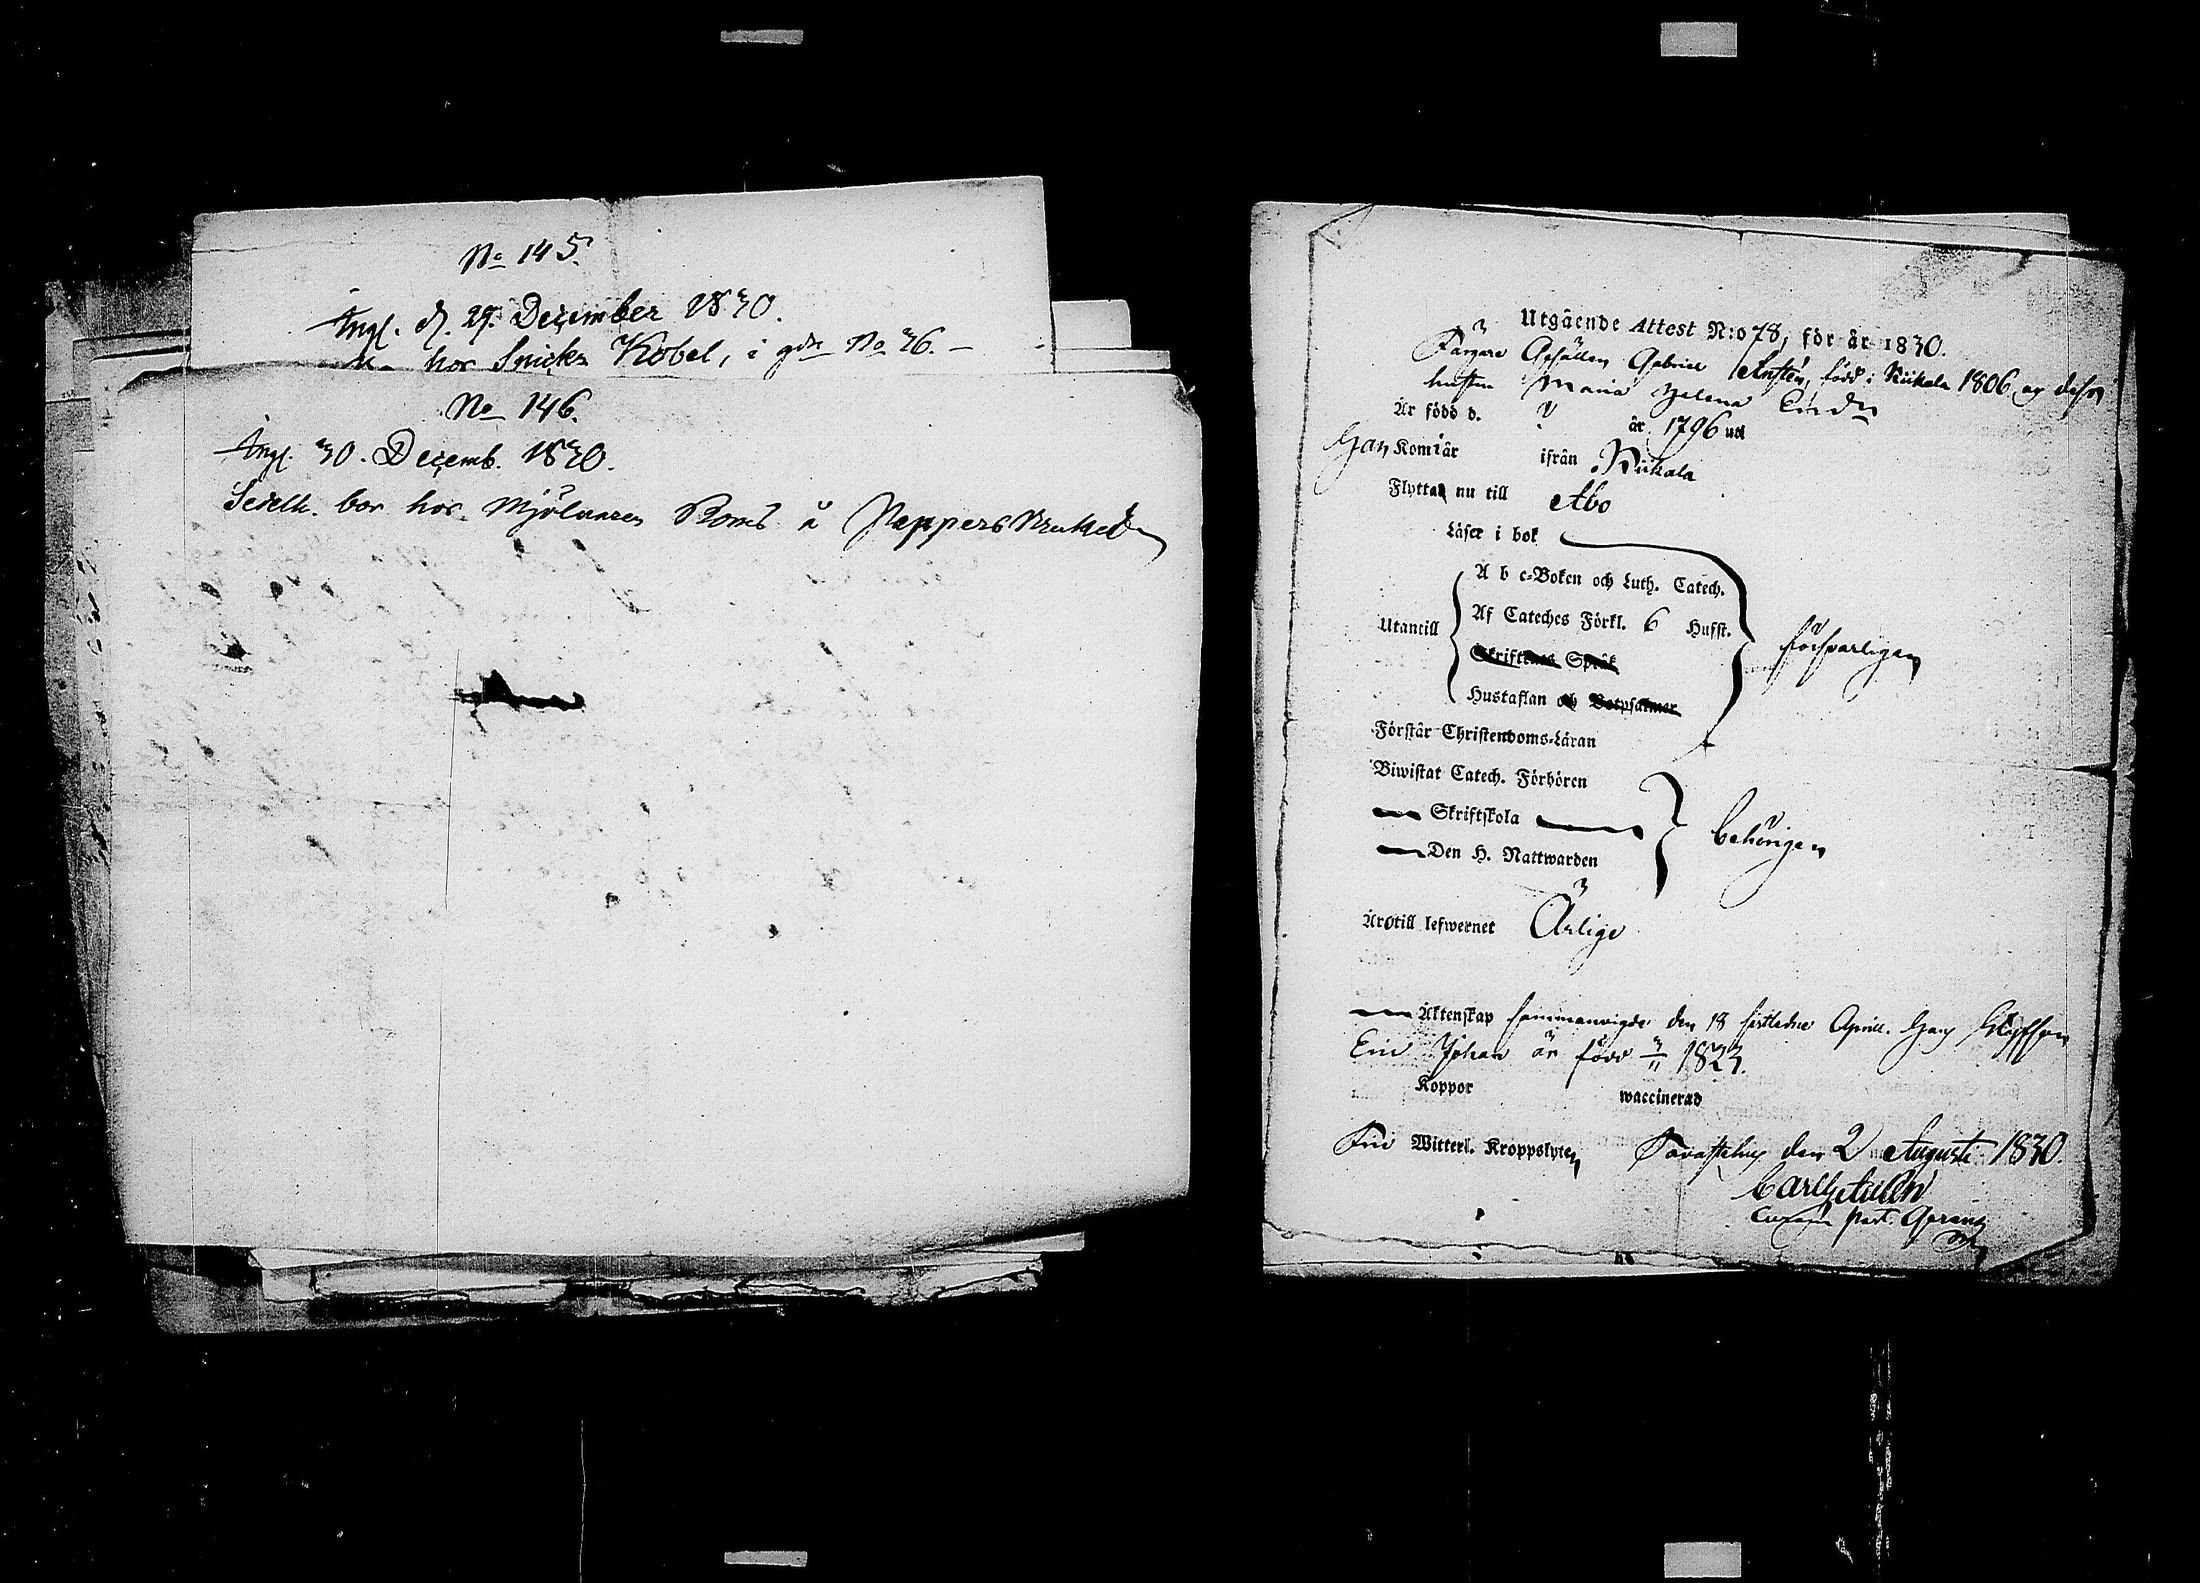 No 145.
Angl. d. 29. December 1830.
hos Snick: Kobel, i gdn No 36. –
No 146.
Angl. 30. Decemb. 1830.
Sedelh. bor hos Mjölnaren å Pappersbruket
Utgående Attest N:o 78, för år 1830.
Färgare Gesällen Gabriel född i Kiikala 1806 och dess
hustru Maria Helena
Är född d. ? år 1796
Han Kom i år ifrån Kiikala
Flyttar nu till Åbo
Läser i bok
A b c-Boken och Luth. Catech.
Utantill Af Cateches Förkl. 6 Husst. försvarligen
Skriftenes Språk
Hustaflan och Botpsalmer
Förstår Christendoms-Läran
Biwistat Catech. Förhören
Skriftskola behörigen
Den H. Nattwarden
Äro till lefwernet Ärlige
Äktenskap sammanvigde den 18 sistledne April. Hans
Johan är född 3/11 1823.
Koppor waccinerad
Fri Witterl. Kroppslyten Tavastehus den 2 Augusti 1830.
Carl
past.